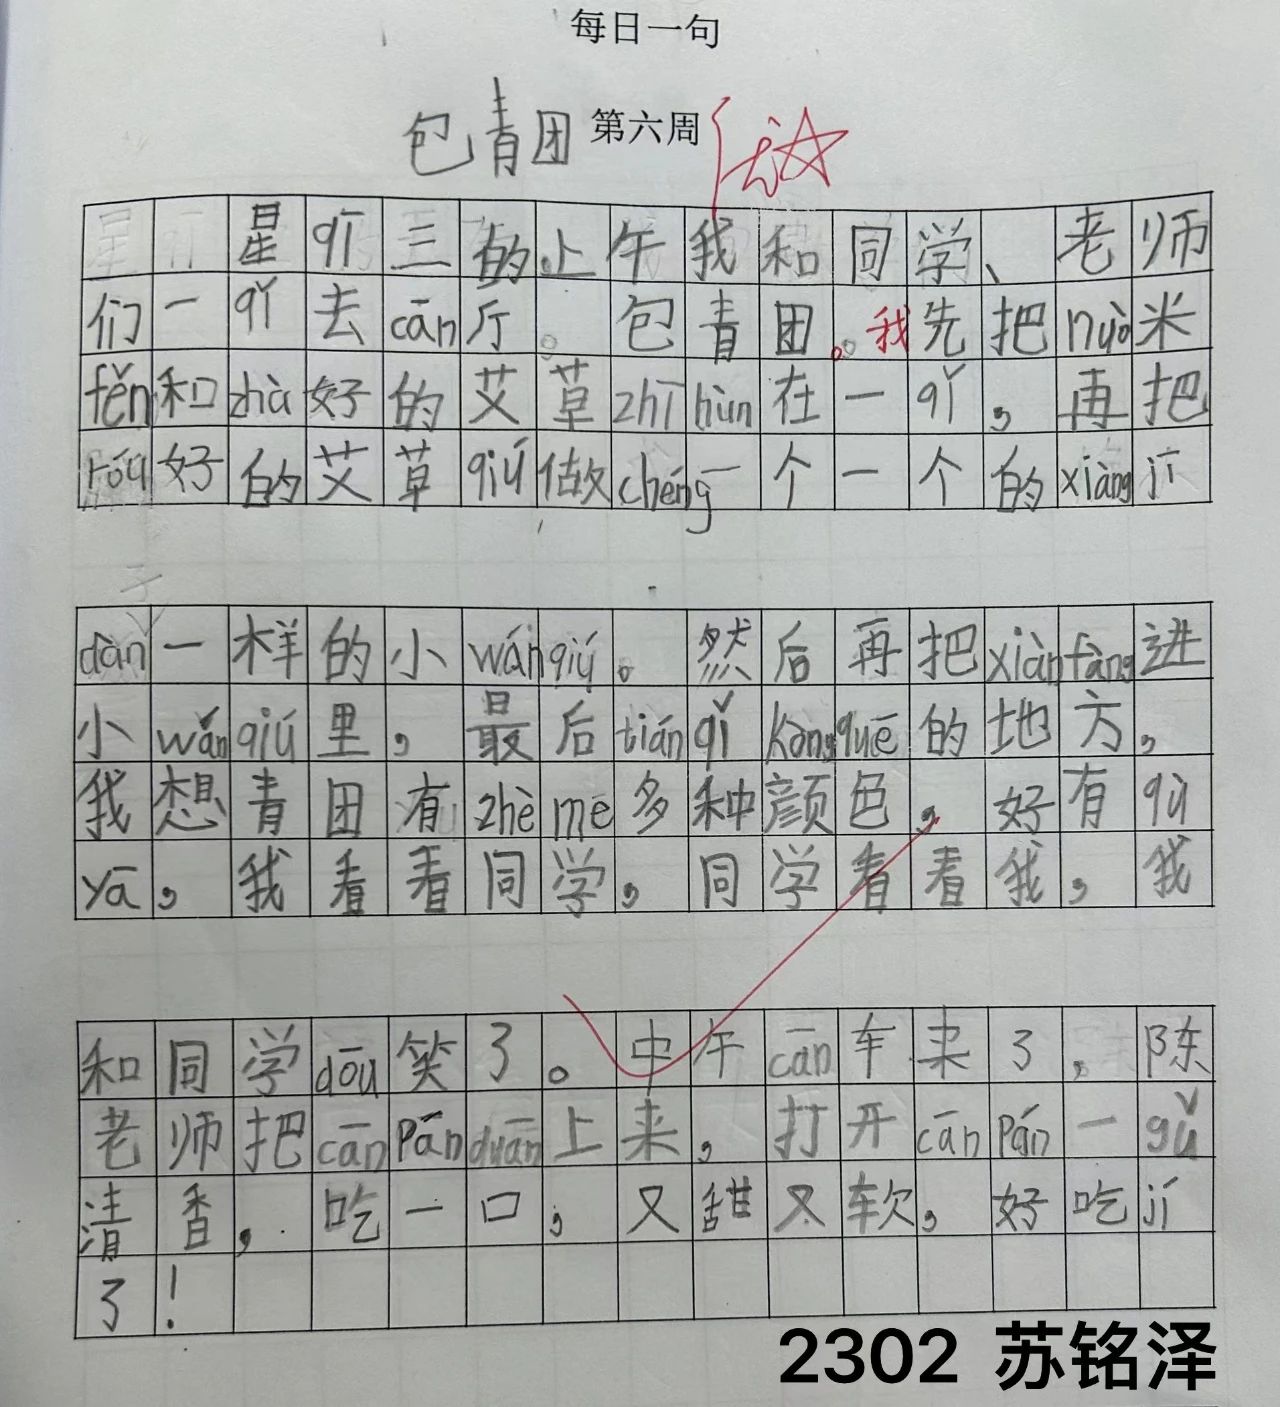 每日一句
包青团 第六周 优
星qī三的上午我和同学、老师
们一qǐ去cān厅。包青团。我先把nuò米
fěn和zhà好的艾草zhī hùn在一qǐ,再把
róu好的艾草qiú做chéng一个一个的xiàng jī
dàn一样的小wán qiú。然后再把xiàn fàng进
小wán qiú里,最后tián qǐ kòng quē的地方,
我想青团有zhè me多种颜色,好有qù
yā,我看看同学,同学看看我,我
和同学dōu笑了。中午cān车来了,陈
老师把cān Pán duān上来,打开cān Pán一gǔ
清香,吃一口,又甜又软,好吃jí
了!
2302 苏铭泽